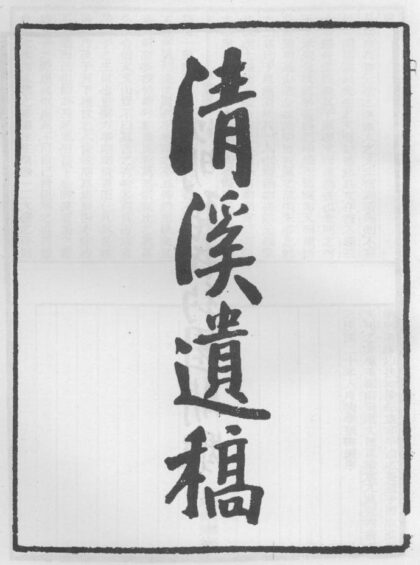 清溪遺稿